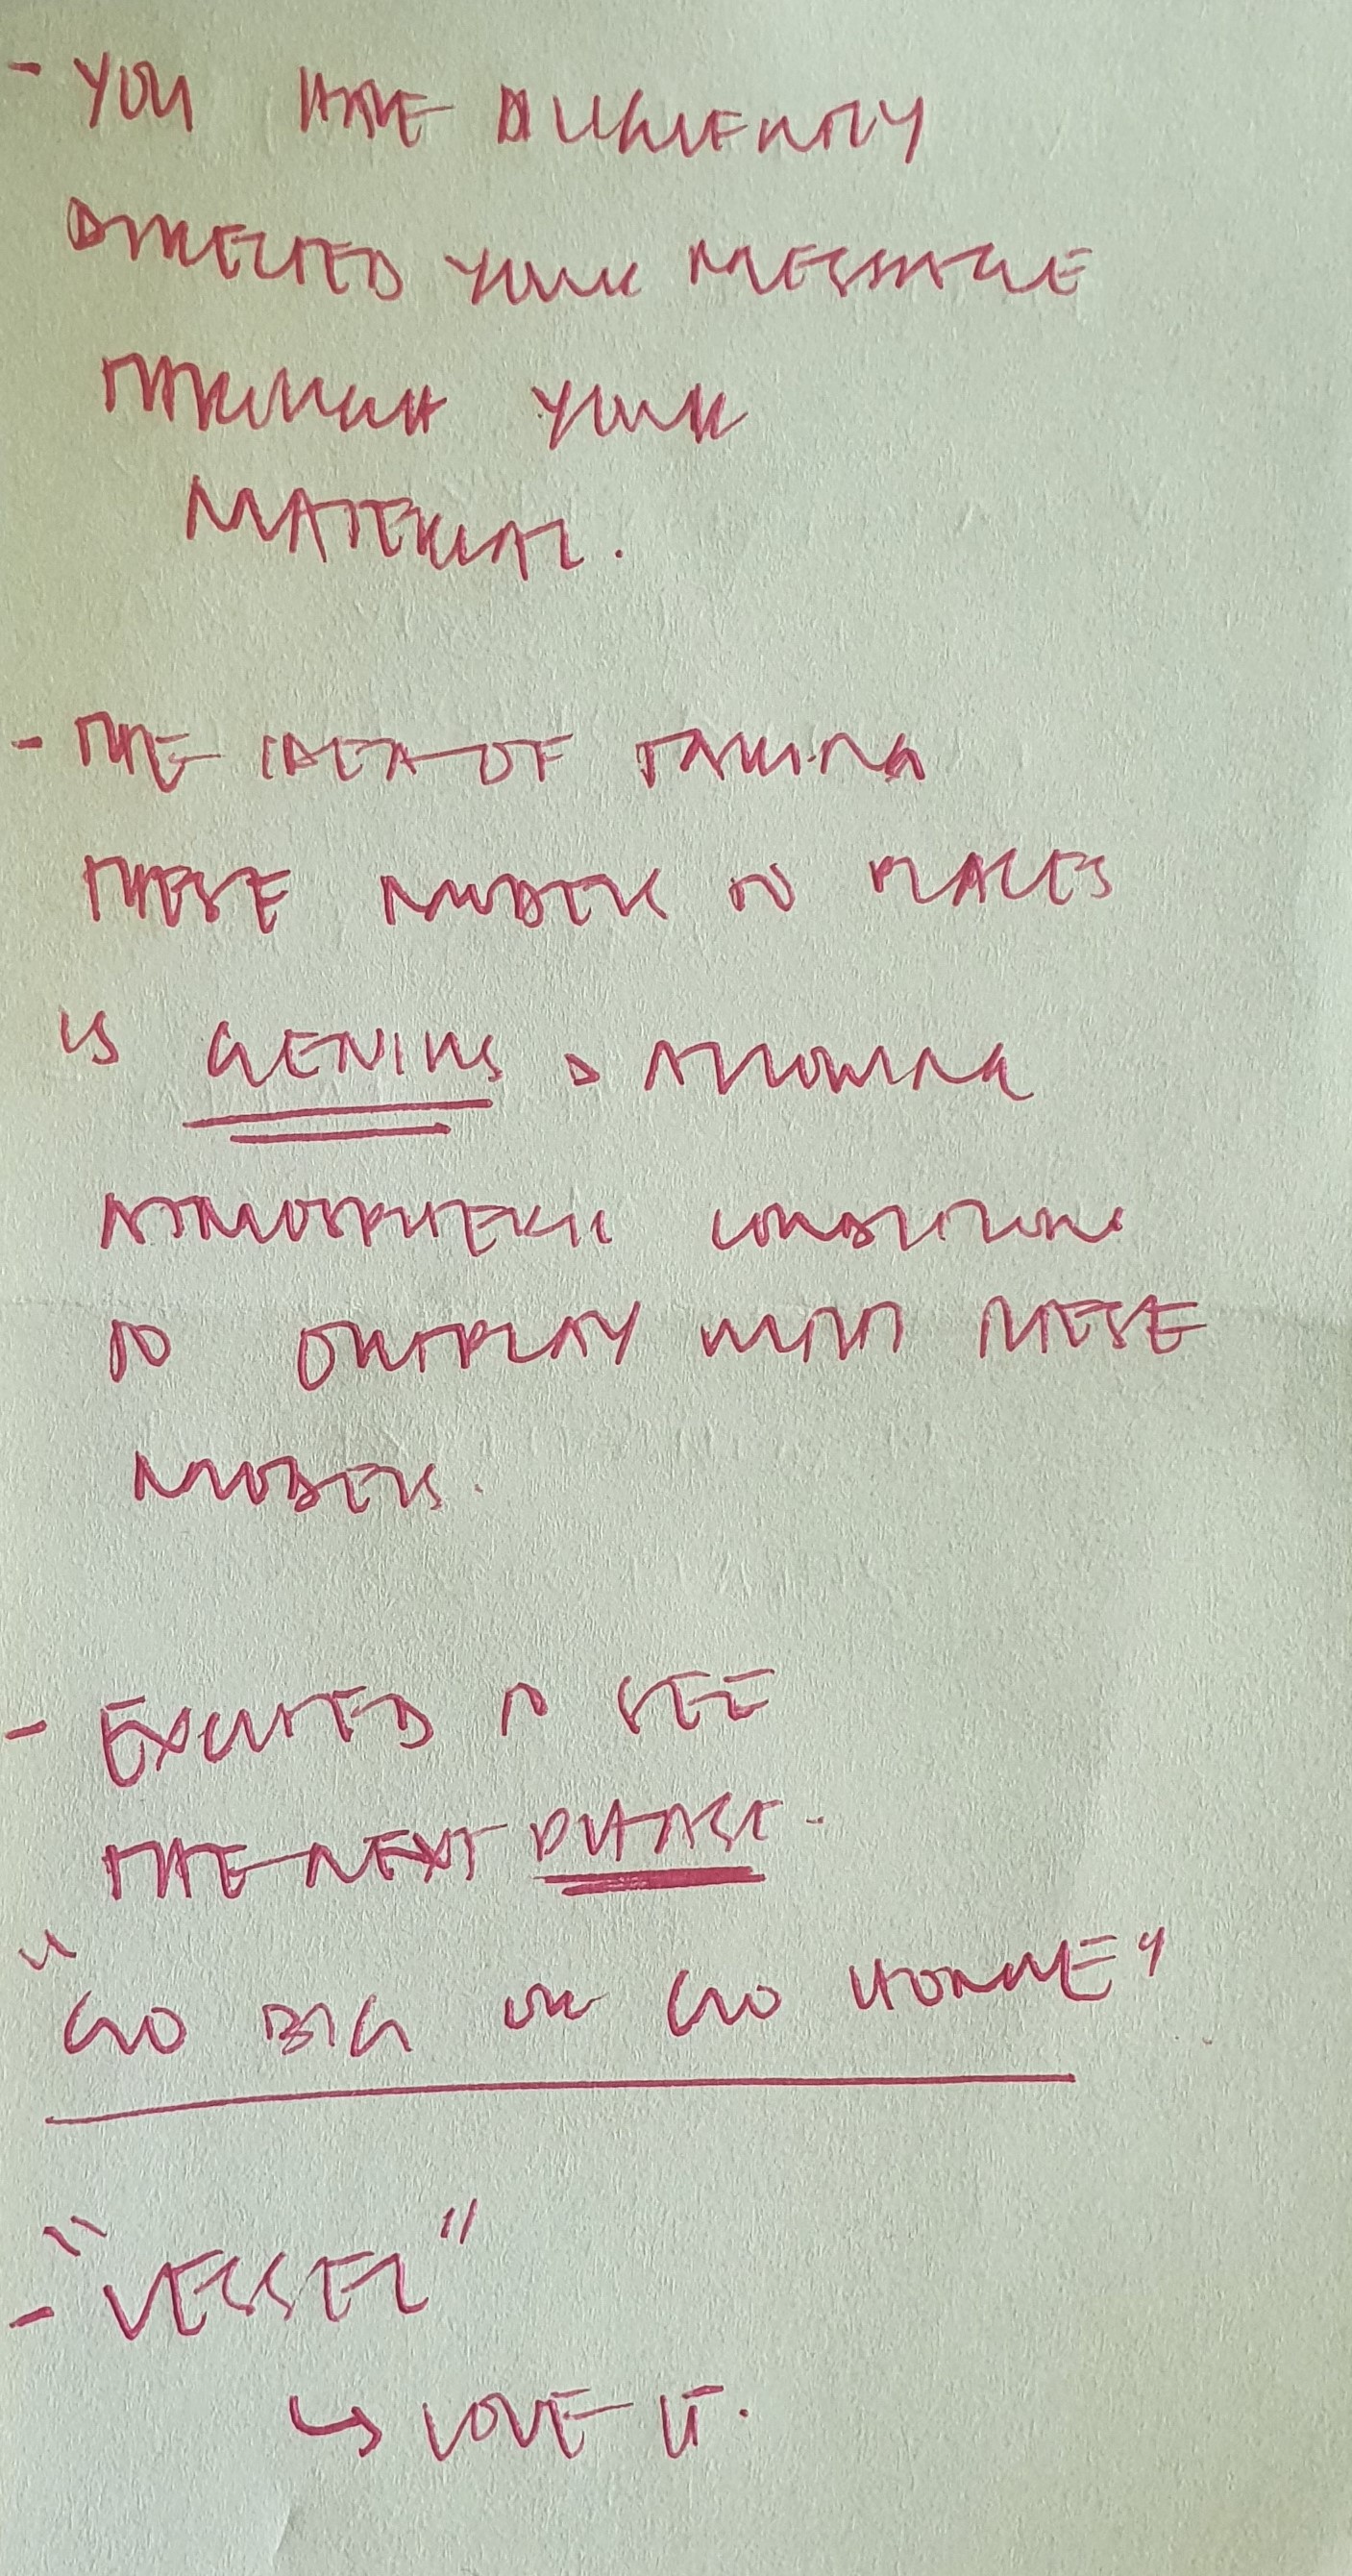 - YOU HAVE DILIGENTLY
DIRECTED YOUR MESSAGE
THROUGH YOUR
MATERIAL.
- THE IDEA OF TAKING
THESE MODELS TO PLACES
IS GENIUS & ALLOWING
ATMOSPHERIC CONDITIONS
TO OUTPLAY WITH THESE
MODELS.
- EXCITED TO SEE
THE NEXT PHASE.
"GO BIG OR GO HOME"
- "VESSEL"
↳ LOVE IT.